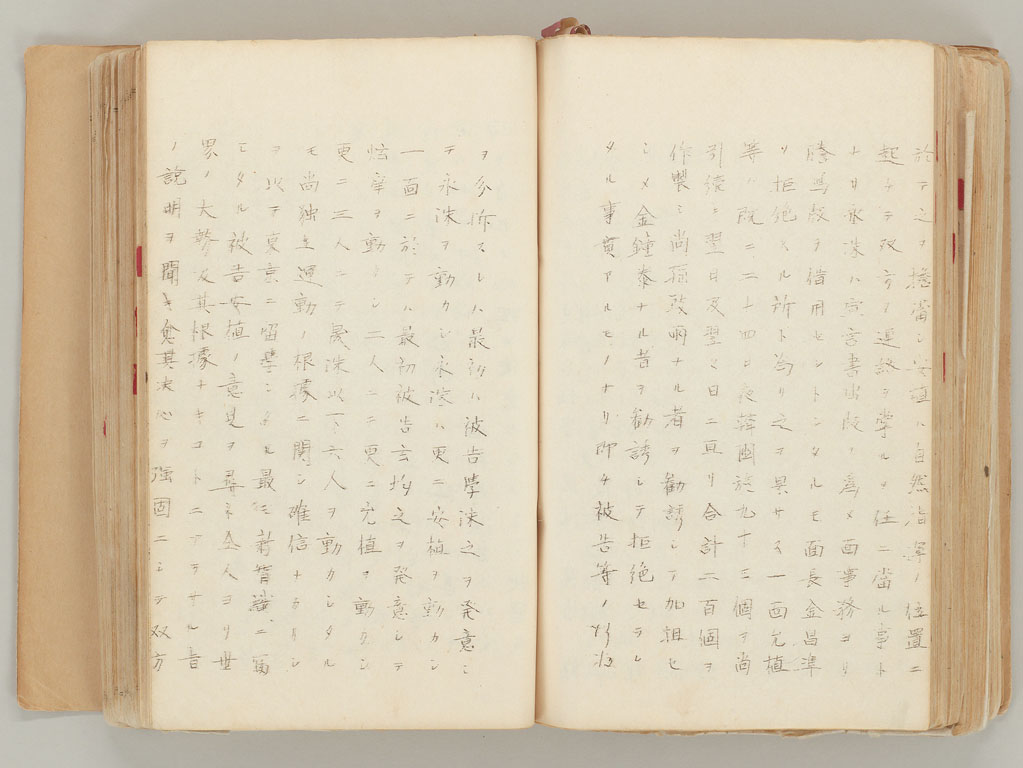 於テ之ヲ擔當シ安植ハ自然沿岸ノ位置ニ
起チテ双方ノ連絡ヲ掌ルノ任ニ當ル事ト
ナリ永洙ハ宣言書出版ノ為メ面事務ヨリ
謄寫版ヲ借用セントシタルモ面長金昌準
ノ拒絶スル所ト為リ之ヲ果サス一面允植
等ハ既ニ二十四日夜韓國旗九十三個ヲ尚
引續キ翌日及翌々日ニ亘リ合計二百個ヲ
作製シ尚孫致明ナル者ヲ勧誘シテ加組セ
シメ金鐘泰ナル者ヲ勧誘シテ拒絶セラレ
タル事實アルモノナリ即チ被告等ノ
ヲ分拆スレハ最初ハ被告學洙之ヲ発意シ
テ永洙ヲ動カシ永洙ハ更ニ安植ヲ動カシ
一面ニ於テハ最初被告玄均之ヲ発意シテ
ヲ動カシ二人ニテ更ニ允植ヲ動カシ
更ニ三人ニテ晟洙以下六人ヲ動カシタル
モ尚独立運動ノ根據ニ関シ確信ナカリシ
ヲ以テ東京ニ留學シタル最モ新智識ニ富
ミタル被告安植ノ意見ヲ尋ネ仝人ヨリ世
界ノ大勢及其根據ナキコトニアラサル旨
ノ說明ヲ聞キ愈其決心ヲ強固ニシテ双方